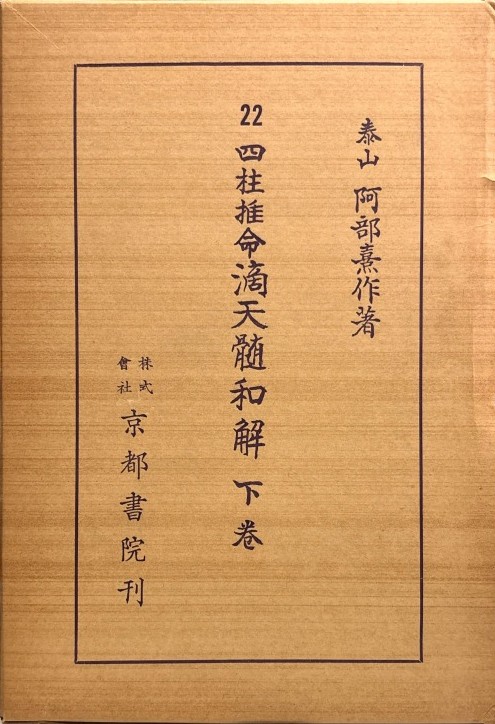 泰山 阿部熹作著
22 四柱推命滴天髄和解 下巻
株式
會社
京都書院刊